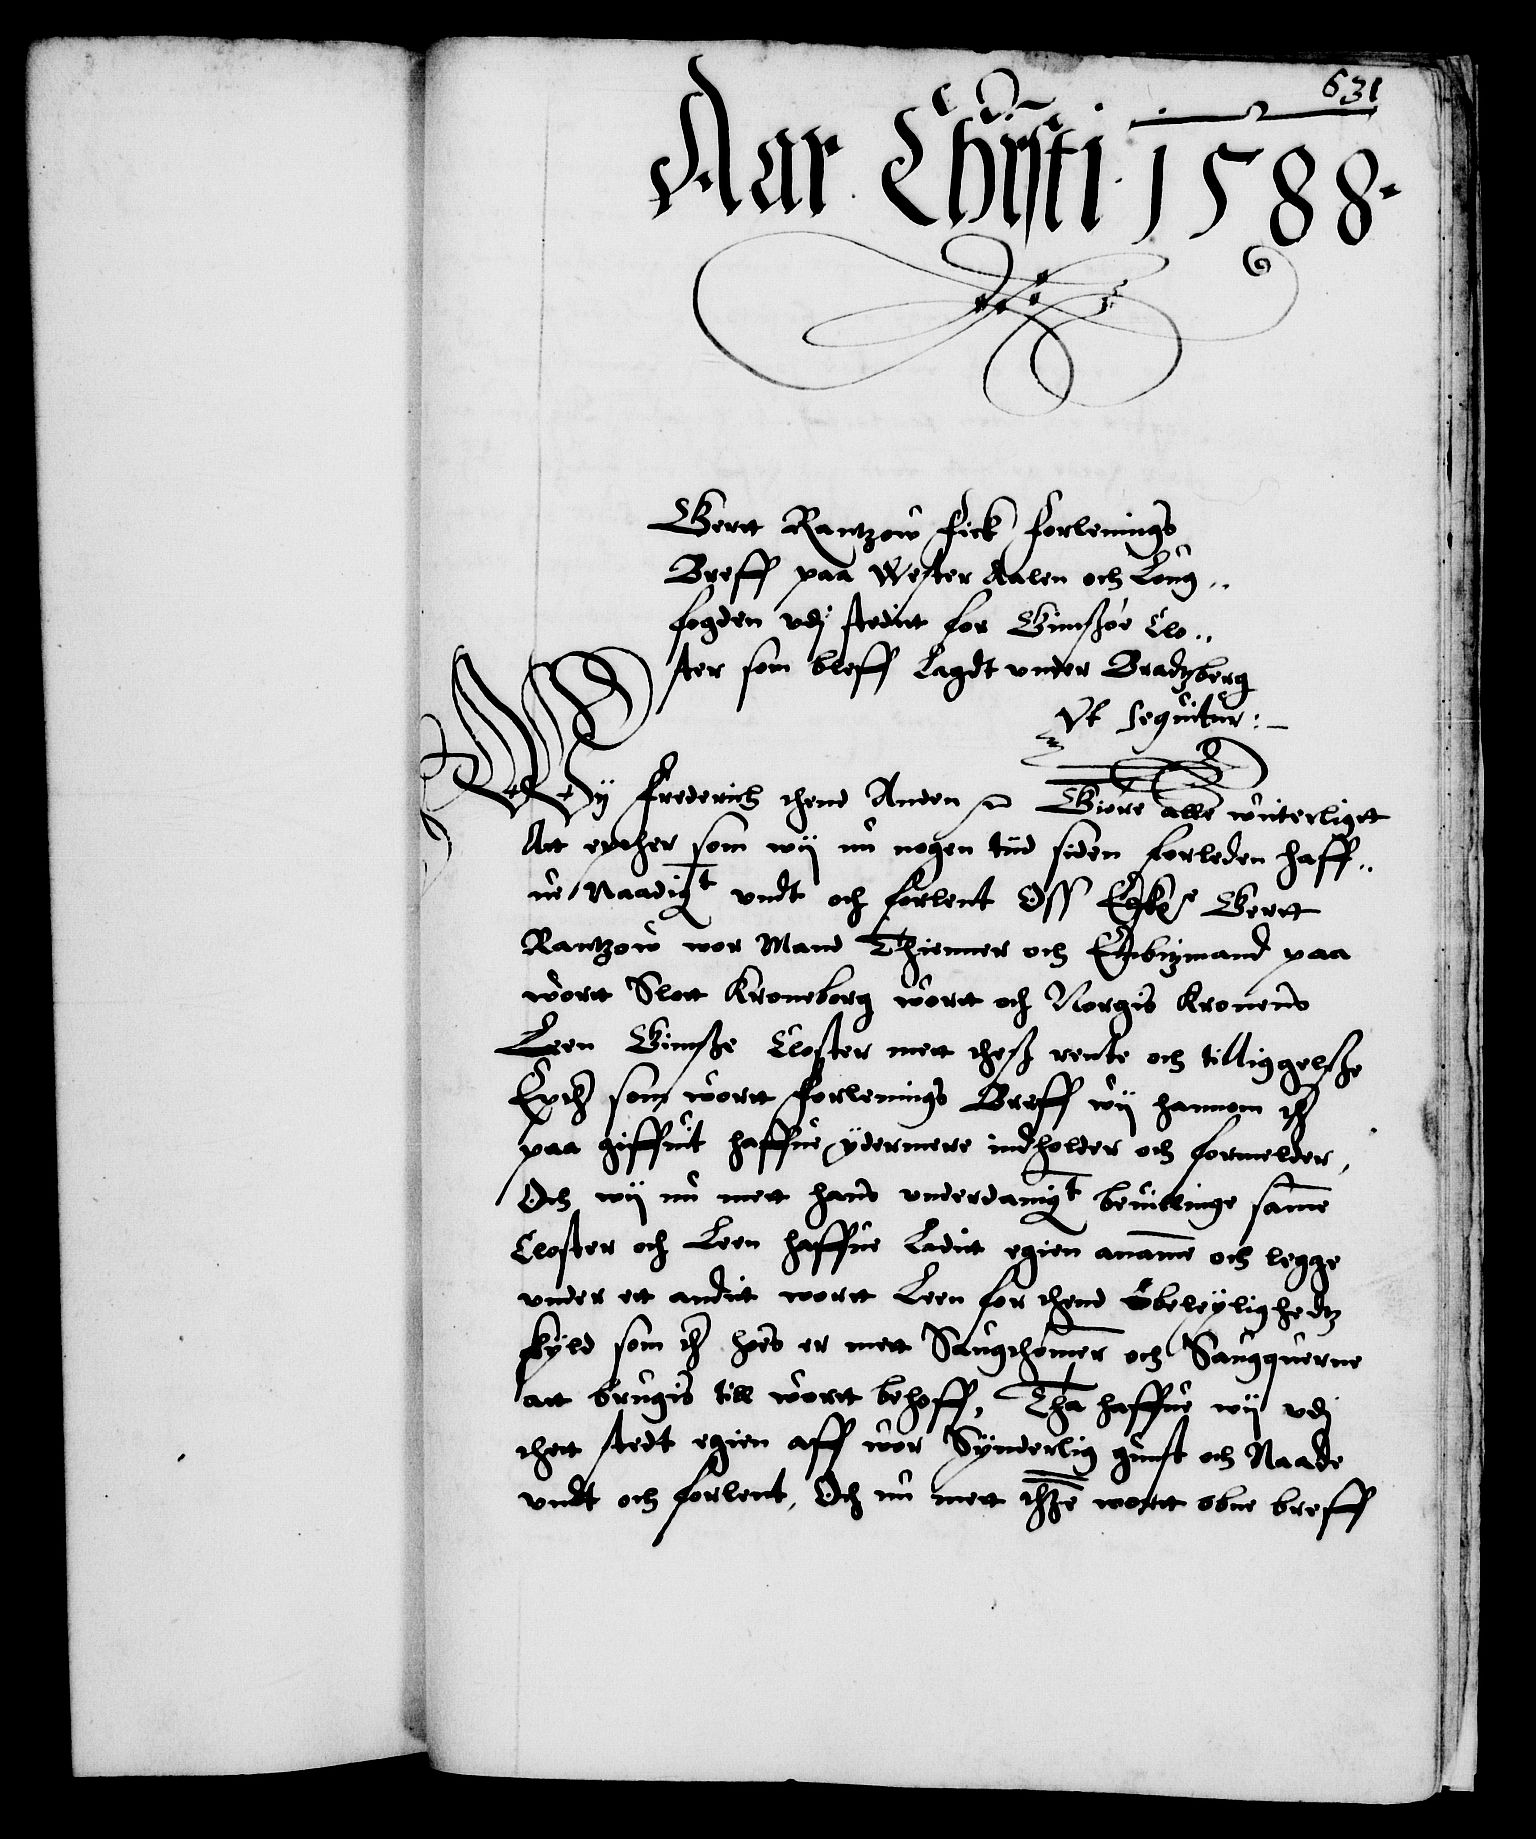 631
Aar Christi 1588.
Gertt Rantzow fick forlenings
Breff paa Wester Aalen och Long,,
fogden vdj stedett for Gimsøe Clo,,
ster som bleff Lagdt under Bradtzberg
Vt Sequitur:-
Wy Frederich thend Anden Giøre alle witterligtt
Att epther som wij nu nogen tiid siden forleden haff,,
ue Naadigt undt och forlent Oss Elske Gertt
Rantzow wor Mand Thienner och Embitzmand paa
wortt Slott Kroneborg wortt och Norgis Kronens
Leen Gimsøe Closter mett thess rente och tilliggelsse
Epther som wortt forlenings Breff wij hannom ther
paa giffuit haffue ydermere indholder och formelder,
Och wij nu mett hans underdanigt beuillinge samme
Closter och Leen haffue Ladett egien anamme och legge
under ett andett wortt Leen for thend beleylighedtz
skyld som ther hoes er mett Saugthømer och Saugquerne
att brugis till wortt behoff, Tha haffue wij vdj
thett stedt egien aff wor Synderlig gunst och Naade
undt och forlent, Och nu mett thesse wortt obne breff